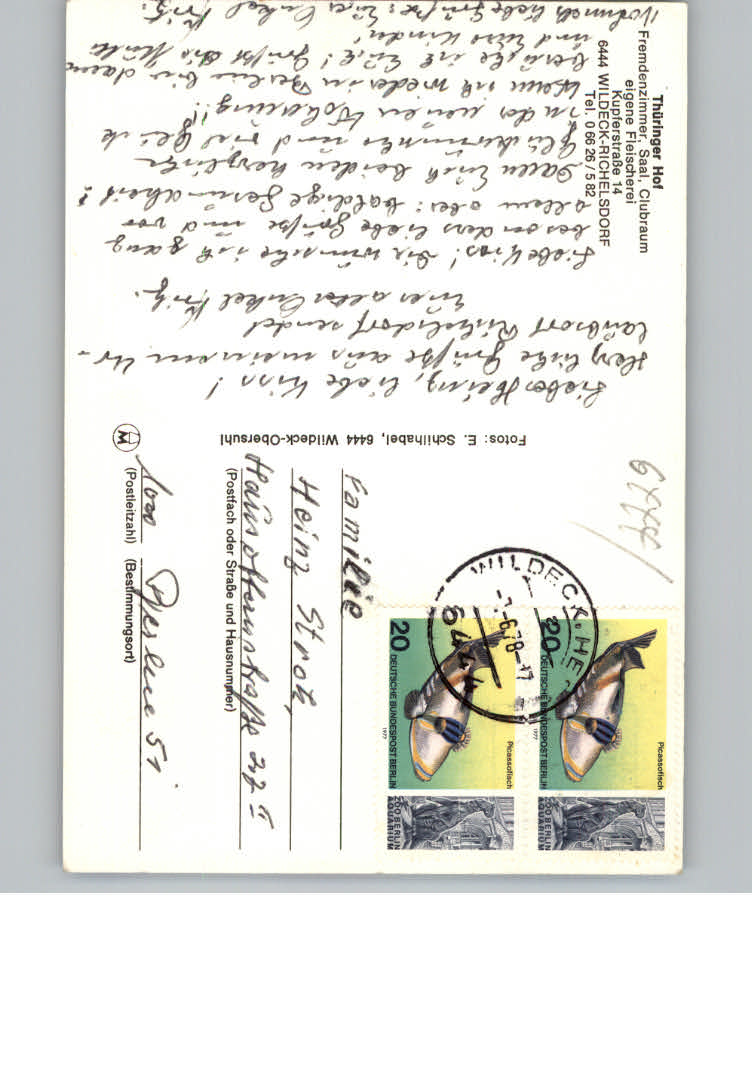 Thüringer Hof
Fremdenzimmer, Saal, Clubraum
eigene Fleischerei
Kupferstraße 14
6444 WILDECK-RICHELSDORF
Tel. 0 66 26 / 5 82
Lieber Heinz, liebe Kiss!
Herzliche Grüße aus meinem Ur-
laubsort Richelsdorf sendet
Euer alter Onkel Fritz.
Liebe Kiss! Dir wünsche ich ganz
besonders liebe Grüße und vor
allem aber: baldige Gesundheit!
Dann Euch beiden herzliche
Glückwünsche und viel Glück
in der neuen Wohnung!!
Wenn ich wieder in Berlin bin dann
besuche ich Euch! Grüßt die
und Eure Kinder!
Nochmals liebe Grüße: Euer Onkel Fritz.
Fotos: E. Schilhabel, 6444 Wildeck-Obersuhl
Familie
Heinz Stroh,
(Postfach oder Straße und Hausnummer)
1000 Berlin 51
(Postleitzahl) (Bestimmungsort)
M
WILDECK, HE
-7.-6.78-17
20
6444
Picassofisch
20
DEUTSCHE BUNDESPOST BERLIN
1977
ZOO BERLIN
AQUARIUM
Picassofisch
20
DEUTSCHE BUNDESPOST BERLIN
1977
ZOO BERLIN
AQUARIUM